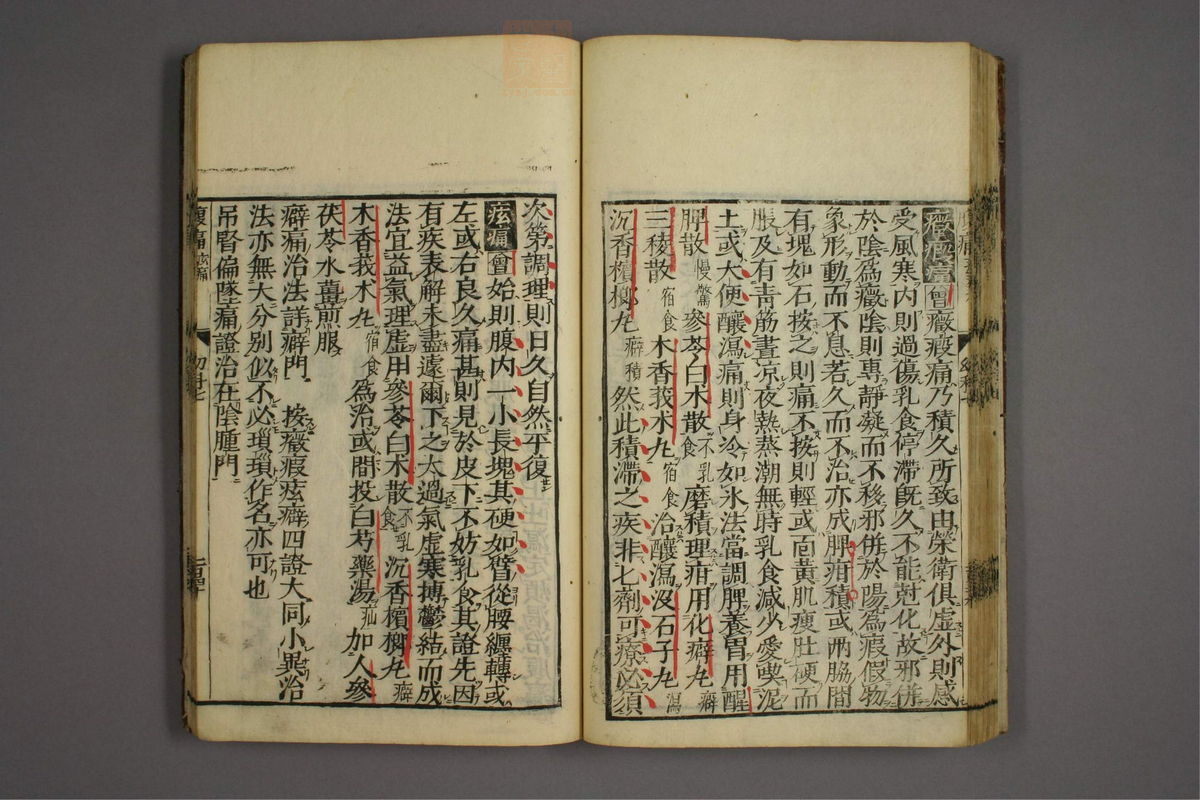 癥瘕痛 會 癥瘕痛乃積久所致由榮衛俱虛外則感
受風寒內則過傷乳食停滯既久不能尅化故邪併
於陰為癥陰則專靜凝而不移邪併於陽為瘕假物
象形動而不息若久而不治亦成脾疳積或兩脇間
有塊如石按之則痛不按則輕或面黃肌瘦肚硬而
脹及有青筋晝凉夜熱蒸潮無時乳食減少愛喫泥
土或大便釀瀉痛則身冷如氷法當調脾養胃用醒
脾散慢驚參苓白朮散不乳食磨積理疳用化癖丸癖
三稜散宿食木香莪朮丸宿食治釀瀉沒石子丸瀉
沉香檳榔丸癖積然此積滯之疾非七劑可療必須
次第調理則日久自然平復
痃痛 會 始則腹內一小長塊其硬如臂從腰纏轉或
左或右良久痛甚則見於皮下不妨乳食其證先因
有疾表解未盡遽爾下之太過氣虛寒搏鬱結而成
法宜益氣理虛用參苓白朮散不乳食沉香檳榔丸癖
木香莪朮丸宿食為治或間投白芍藥湯疝加人參
茯苓水薑煎服
癖痛治法詳癖門 按癥瘕痃癖四證大同小異治
法亦無大分別似不必瑣瑣作名亦可也
吊腎偏墜痛證治在陰腫門
腹痛 痃痛